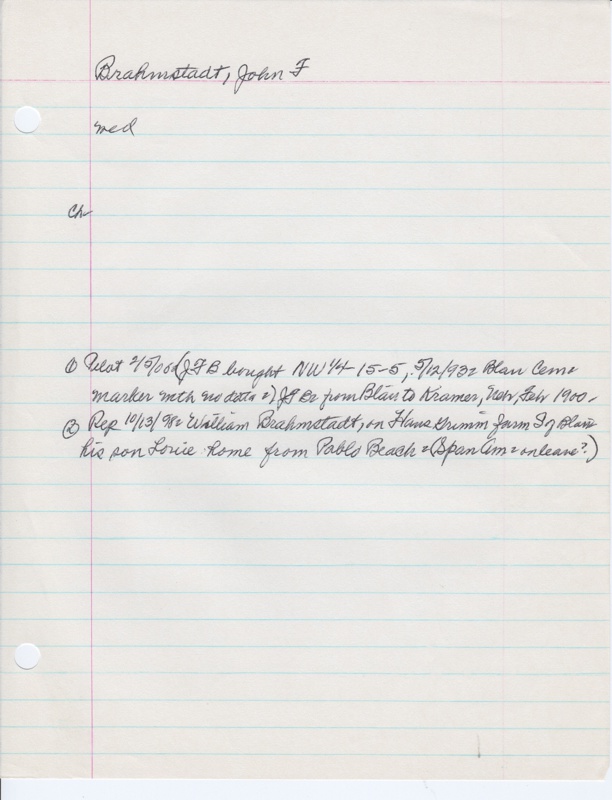 Brahmstadt, John F
med
Ch
① Pilot 2/5/06 (JFB bought NW 1/4 15-5, 5/12/93 = Blair Cem =
marker with no data =) JF Br from Blair to Kramer, Nebr, Feb 1900.
② Rep 10/13/98 = William Brahmstadt, on Hans Grimm farm S of Blair
his son Louie home from Pablo Beach = (Span Am = on leave?)